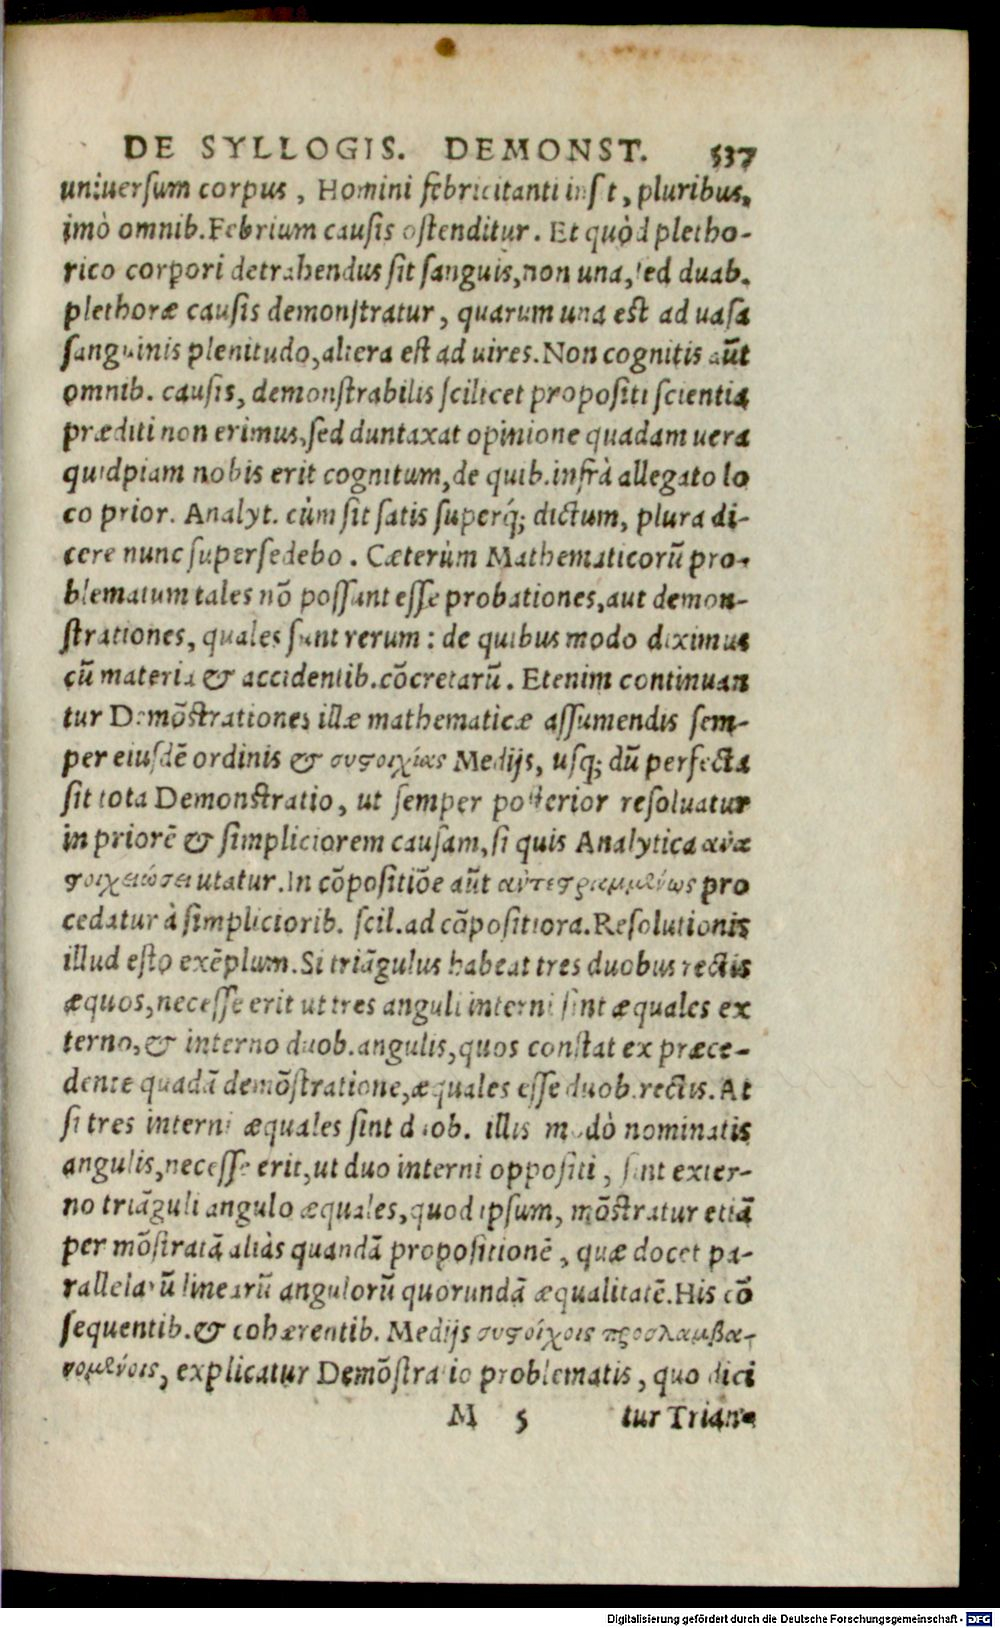 DE SYLLOGIS. DEMONST. 537
uniuersum corpus, Homini febricitanti insit, pluribus,
imò omnib. Febrium causis ostenditur. Et quòd pletho-
rico corpori detrahendus sit sanguis, non una, sed duab.
plethoræ causis demonstratur, quarum una est ad uasa
sanguinis plenitudo, altera est ad uires. Non cognitis aũt
omnib. causis, demonstrabilis scilicet propositi scientia
præditi non erimus, sed duntaxat opinione quadam uera
quidpiam nobis erit cognitum, de quib. infrà allegato lo
co prior. Analyt. cùm sit satis superq́; dictum, plura di-
cere nunc supersedebo. Cæterùm Mathematicorũ pro-
blematum tales nõ possunt esse probationes, aut demon-
strationes, quales sunt rerum: de quibus modo diximus
cũ materia & accidentib. cõcretarũ. Etenim continuan
tur Demõstrationes illæ mathematicæ assumendis sem-
per eiusdẽ ordinis & συϛοιχίας Medijs, usq; dũ perfecta
sit tota Demonstratio, ut semper posterior resoluatur
in priorẽ & simpliciorem causam, si quis Analytica ανα
ϛοιχειώσει utatur. In cõpositiõe aũt pro
cedatur à simpliciorib. scil. ad cõpositiora. Resolutionis
illud esto exẽplum. Si triãgulus habeat tres duobus rectis
æquos, necesse erit ut tres anguli interni sint æquales ex
terno, & interno duob. angulis, quos constat ex præce-
dente quadã demõstratione, æquales esse duob. rectis. At
si tres interni æquales sint duob. illis modò nominatis
angulis, necesse erit, ut duo interni oppositi, sint exter-
no triãguli angulo æquales, quod ipsum, mõstratur etiã
per mõstratã aliàs quandã propositionẽ, quæ docet pa-
rallelarũ linearũ angulorũ quorundã æqualitatẽ. His cõ
sequentib. & cohærentib. Medijs συϛοίχοις προσλαμβα-
νομένοις, explicatur Demõstratio problematis, quo dici
M 5 tur Trian-
Digitalisierung gefördert durch die Deutsche Forschungsgemeinschaft - DFG